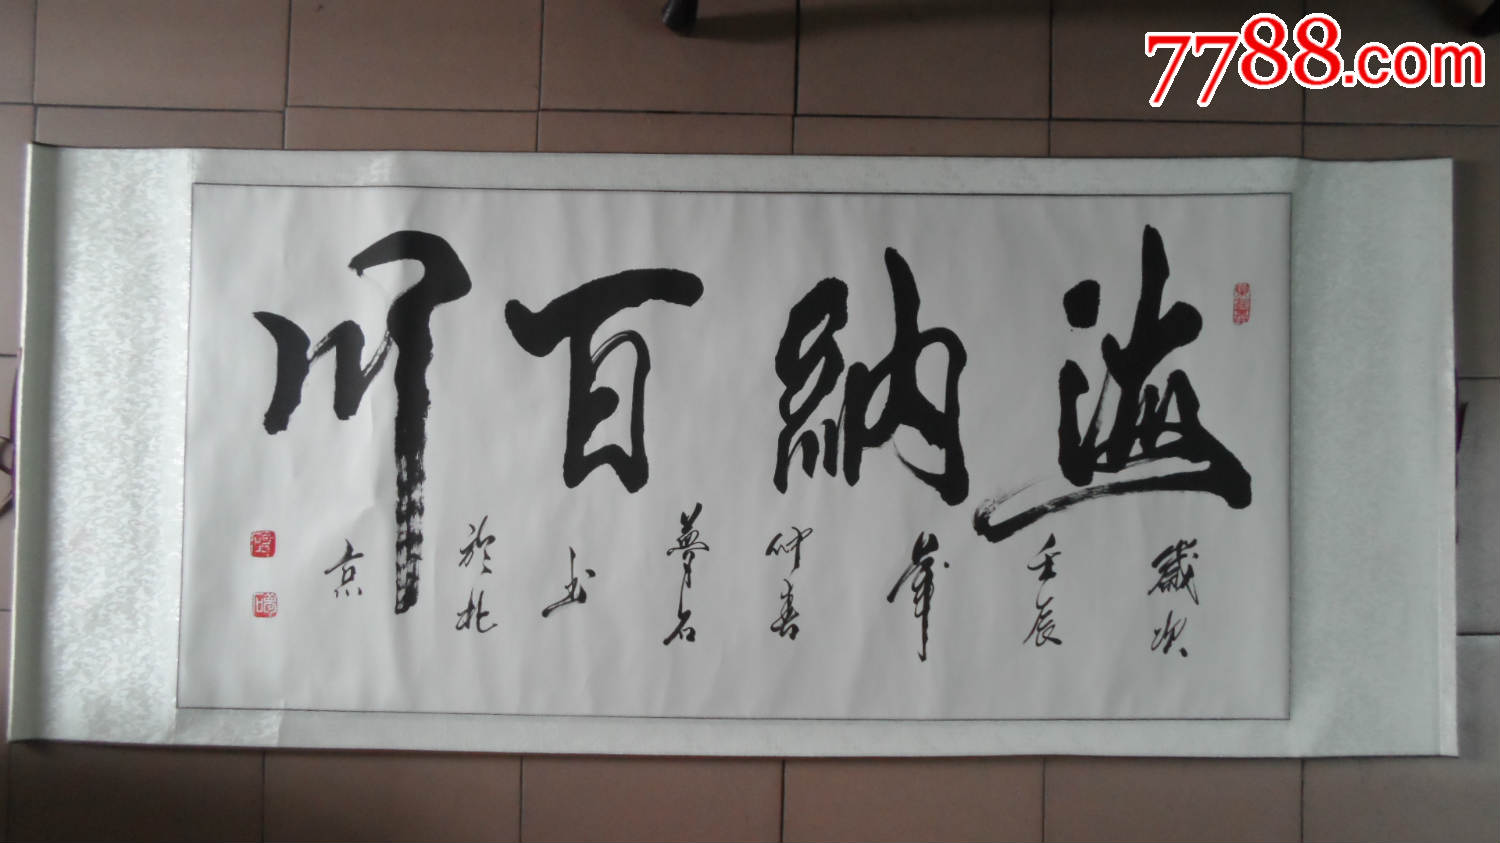 7788.com
海納百川
歲次
壬辰
年
仲春
夢石
书
於北
京